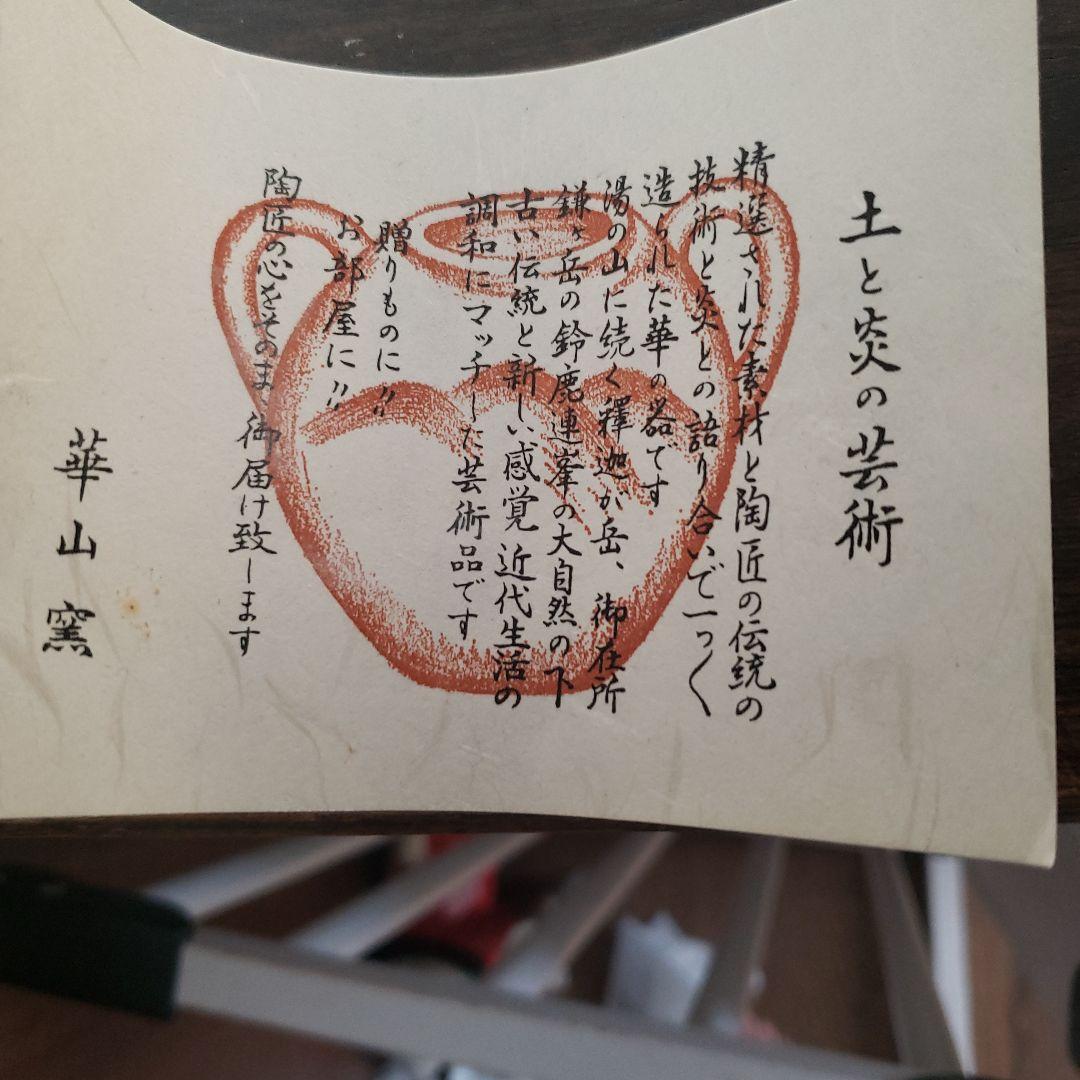 土と炎の芸術
精選された素材と陶匠の伝統の
技術と炎との語り合いで一つ〱
造られた華の器です
湯の山に続く釋迦が岳、御在所
鎌ヶ岳の鈴鹿連峯の大自然の下
古い伝統と新しい感覚 近代生活の
調和にマッチした芸術品です
贈りものに〃
お部屋に〃
陶匠の心をそのまゝ御届け致します
華山窯